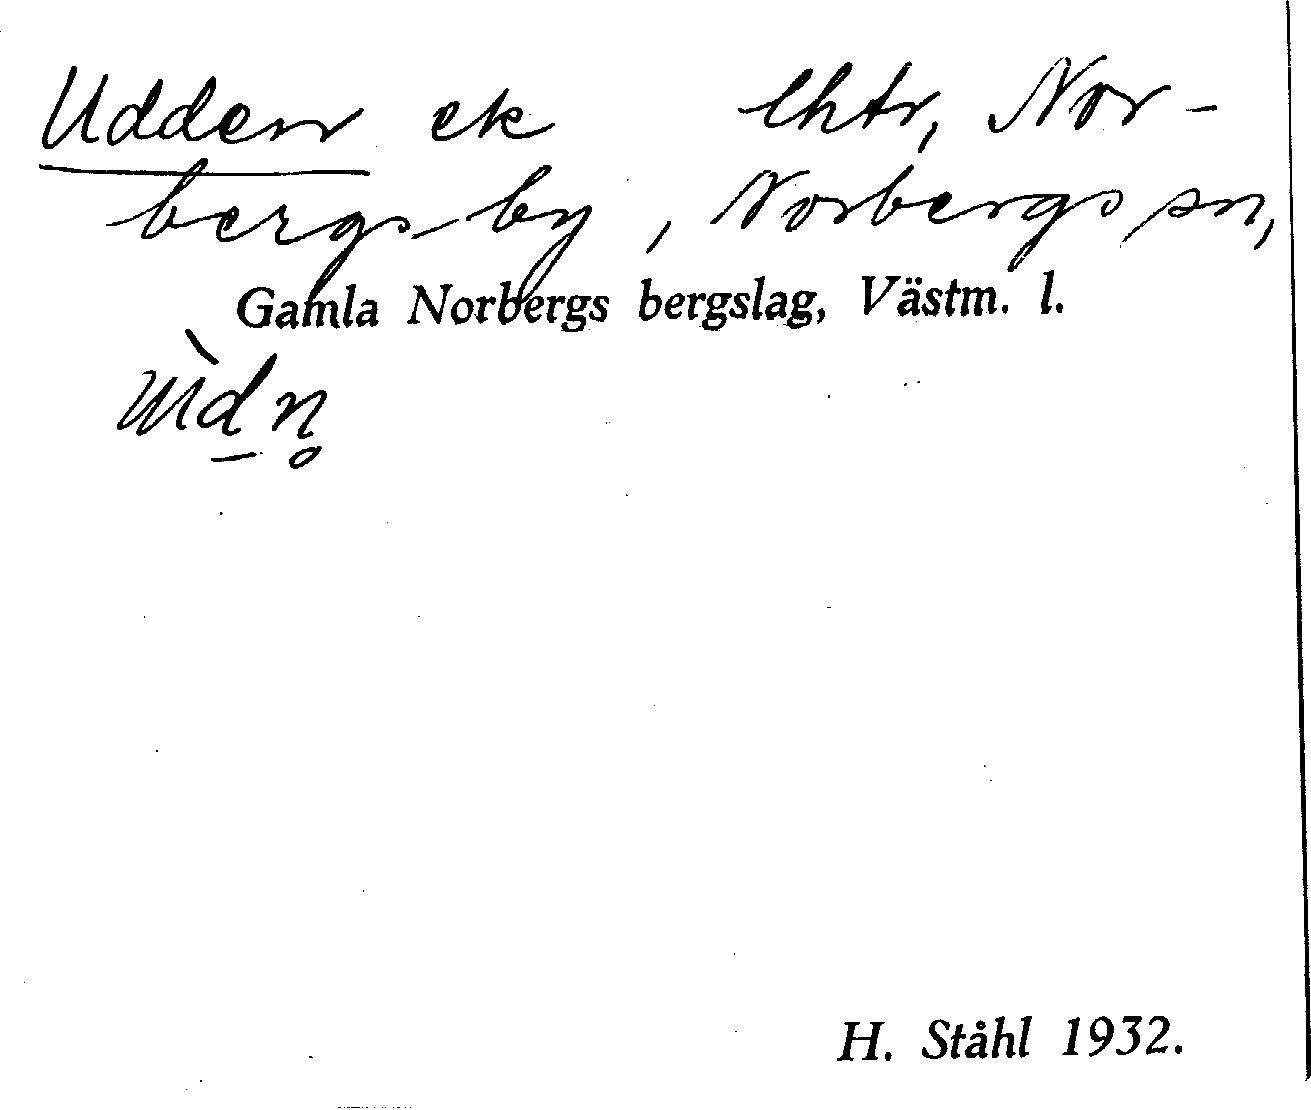 Udden ek lhtr, Nor-
bergsby, Norbergs sn,
Gamla Norbergs bergslag, Västm. l.
H. Ståhl 1932.